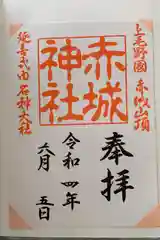 上毛野國 赤城山頂
奉拝
赤城神社
令和四年
六月五日
延喜式内 名神大社